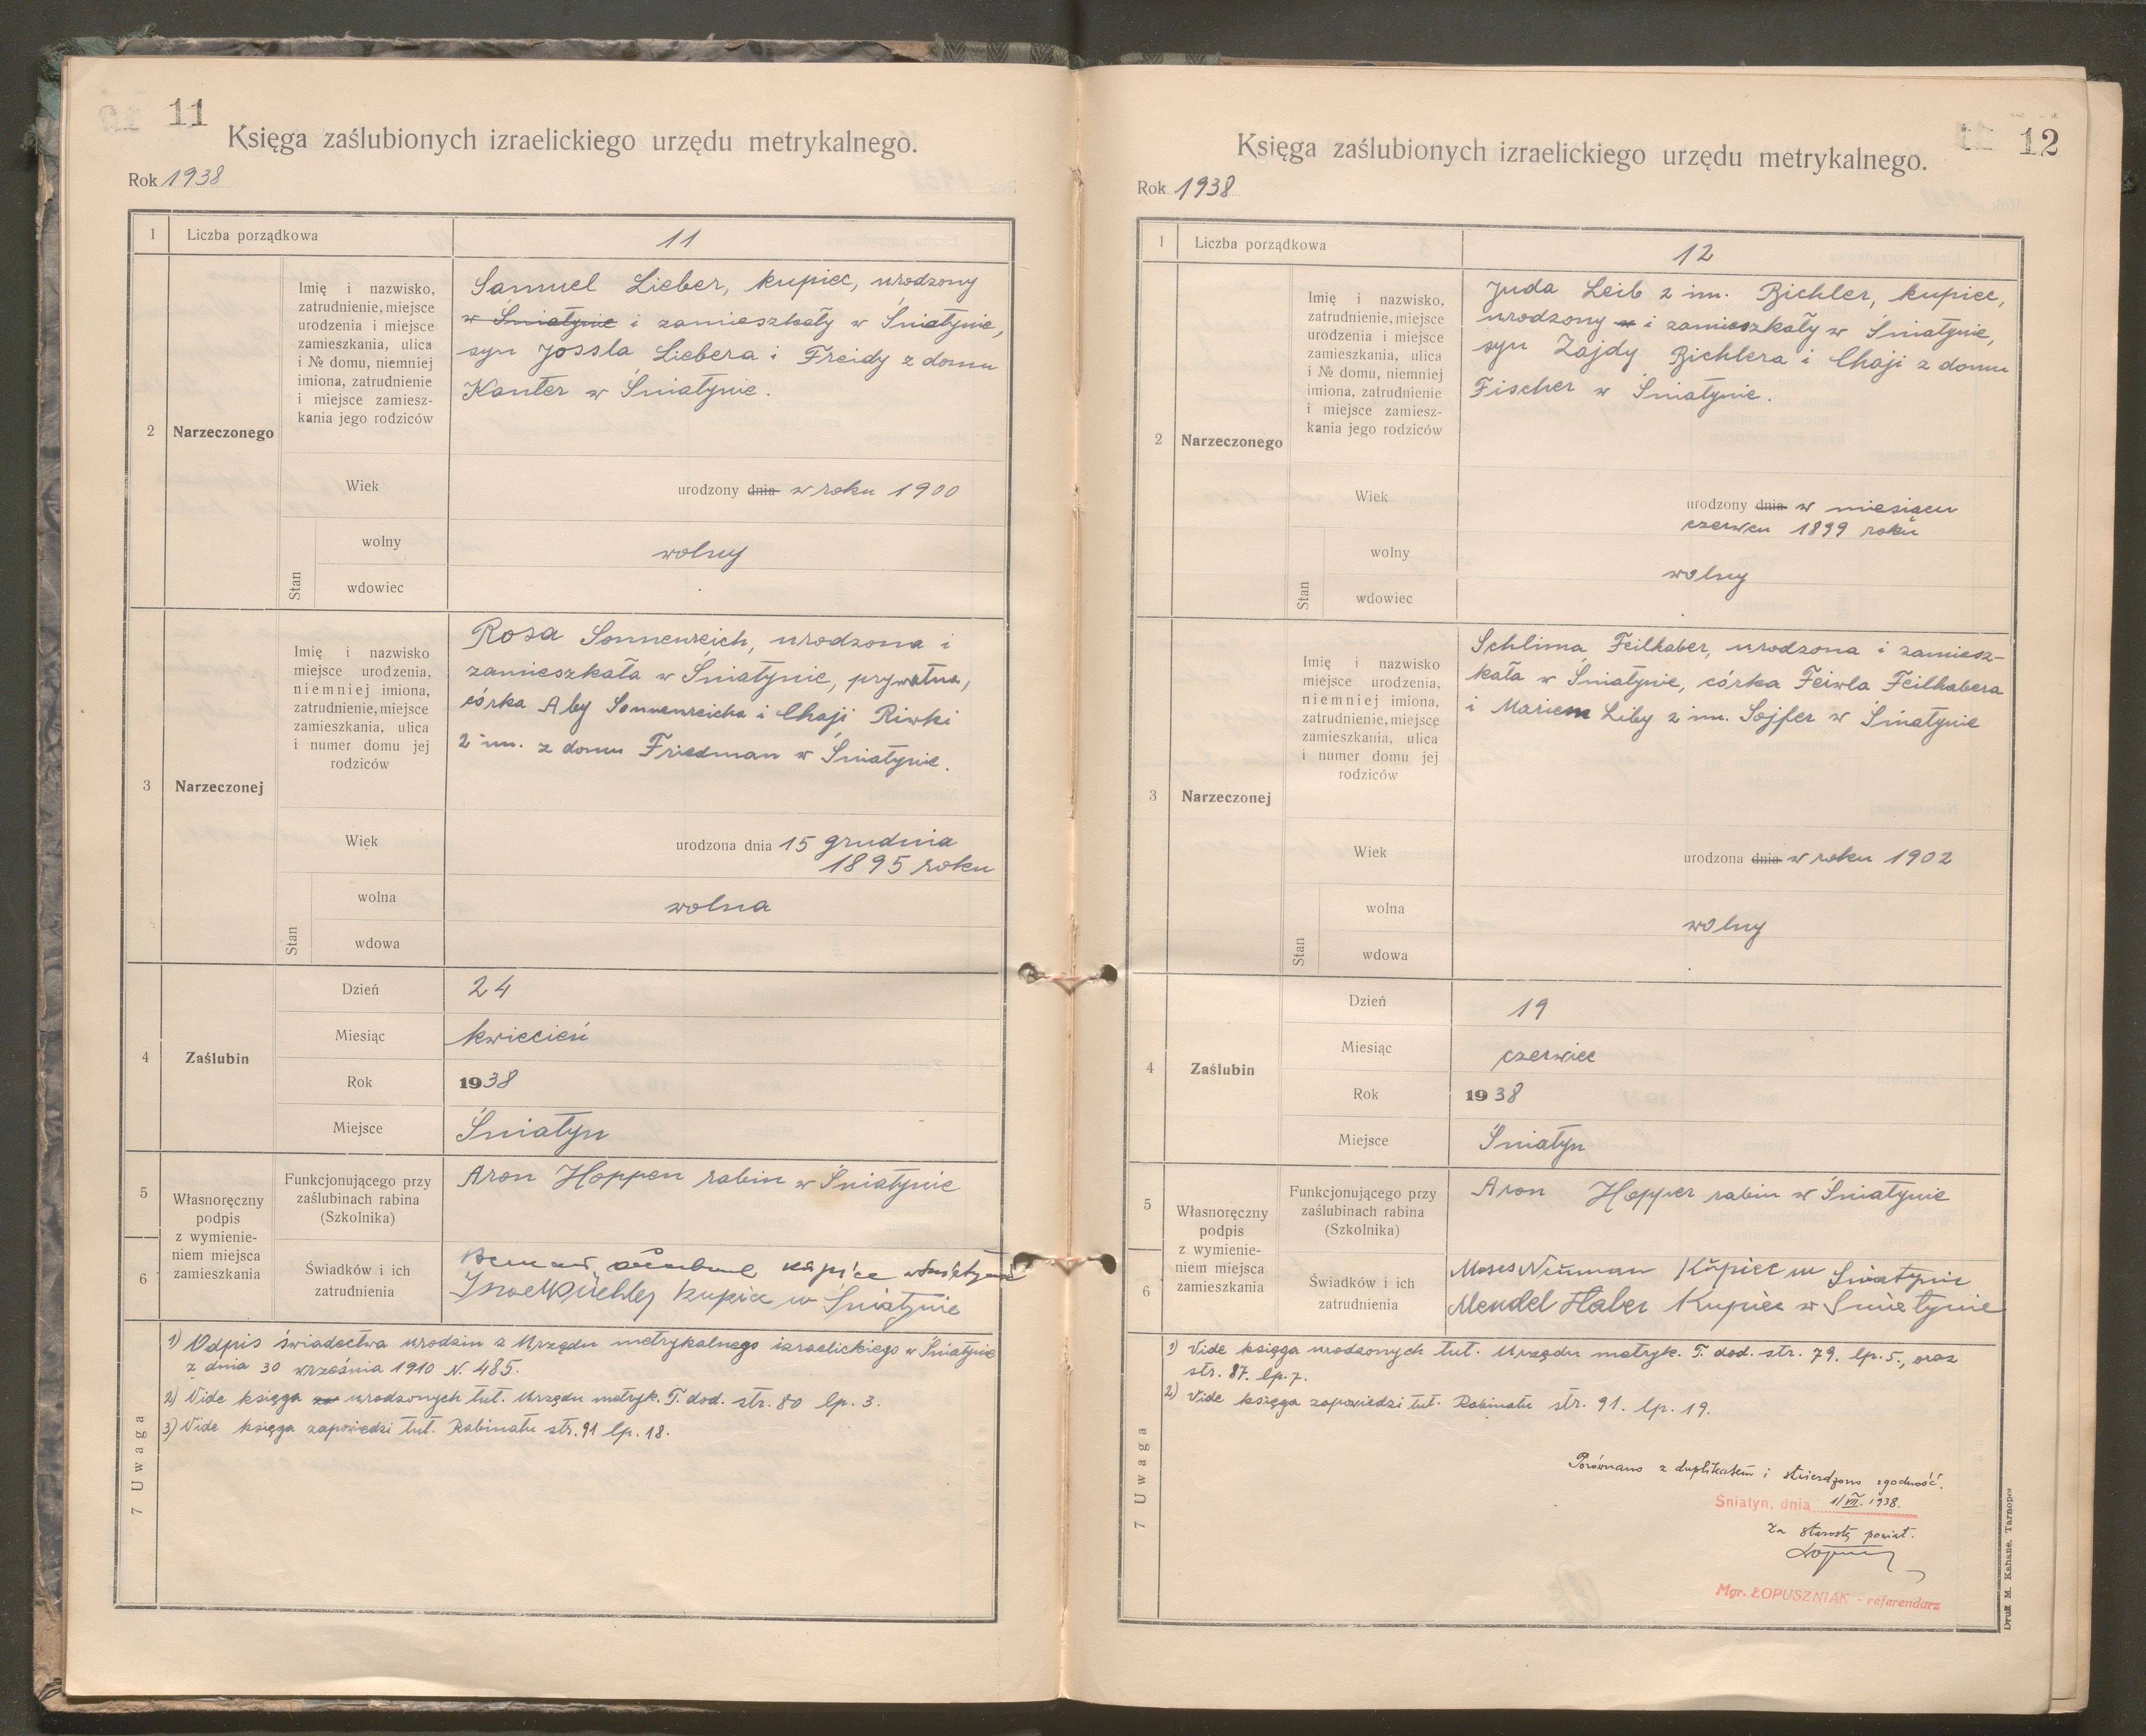 11
Księga zaślubionych izraelickiego urzędu metrykalnego.
Rok 1938
1 Liczba porządkowa 11
2 Narzeczonego
Imię i nazwisko,
zatrudnienie, miejsce
urodzenia i miejsce
zamieszkania, ulica
i № domu, niemniej
imiona, zatrudnienie
i miejsce zamiesz-
kania jego rodziców
Samuel Lieber, kupiec, urodzony
w Śniatynie i zamieszkały w Śniatynie,
syn Jossla Liebera i Freidy z domu
Kanter w Śniatynie.
Wiek urodzony dnia w roku 1900
Stan
wolny
wdowiec
wolny
3 Narzeczonej
Imię i nazwisko
miejsce urodzenia,
niemniej imiona,
zatrudnienie, miejsce
zamieszkania, ulica
i numer domu jej
rodziców
Rosa Sonnenreich, urodzona i
zamieszkała w Śniatynie, prywatna,
córka Aby Sonnenreicha i Chaji Riwki
2 im. z domu Friedman w Śniatynie.
Wiek urodzona dnia 15 grudnia
1895 roku
Stan
wolna
wdowa
wolna
4 Zaślubin
Dzień 24
Miesiąc kwiecień
Rok 1938
Miejsce Śniatyn
5
6
Własnoręczny
podpis
z wymienie-
niem miejsca
zamieszkania
Funkcjonującego przy
zaślubinach rabina
(Szkolnika)
Aron Hoppen rabin w Śniatynie
Świadków i ich
zatrudnienia
kupiec w Śniatynie
kupiec w Śniatynie
7 Uwaga
1) Odpis świadectwa urodzin z Urzędu metrykalnego izraelickiego w Śniatynie
z dnia 30 września 1910 N. 485.
2) Vide księga urodzonych tut. Urzędu metryk. T. dod. str. 80 lp. 3.
3) Vide księga zapowiedzi tut. Rabinatu str. 91 lp. 18.
12
Księga zaślubionych izraelickiego urzędu metrykalnego.
Rok 1938
1 Liczba porządkowa 12
2 Narzeczonego
Imię i nazwisko,
zatrudnienie, miejsce
urodzenia i miejsce
zamieszkania, ulica
i № domu, niemniej
imiona, zatrudnienie
i miejsce zamiesz-
kania jego rodziców
Juda Leib 2 im. Bichler, kupiec,
urodzony w i zamieszkały w Śniatynie,
syn Zajdy Bichlera i Chaji z domu
Fischer w Śniatynie.
Wiek urodzony dnia w miesiącu
czerwcu 1899 roku
Stan
wolny
wdowiec
wolny
3 Narzeczonej
Imię i nazwisko
miejsce urodzenia,
niemniej imiona,
zatrudnienie, miejsce
zamieszkania, ulica
i numer domu jej
rodziców
Schlima Feilhaber, urodzona i zamiesz-
kała w Śniatynie, córka Feiwla Feilhabera
i Mariem Liby 2 im. Sojfer w Śniatynie
Wiek urodzona dnia w roku 1902
Stan
wolna
wdowa
wolny
4 Zaślubin
Dzień 19
Miesiąc czerwiec
Rok 1938
Miejsce Śniatyn
5
6
Własnoręczny
podpis
z wymienie-
niem miejsca
zamieszkania
Funkcjonującego przy
zaślubinach rabina
(Szkolnika)
Aron Hoppen rabin w Śniatynie
Świadków i ich
zatrudnienia
Moses Neuman Kupiec w Śniatynie
Mendel Haber Kupiec w Śniatynie
7 Uwaga
1) Vide księga urodzonych tut. Urzędu metryk. T. dod. str. 79. lp. 5., oraz
str. 87. lp. 7.
2) Vide księga zapowiedzi tut. Rabinatu str. 91. lp. 19.
Porównano z duplikatem i stwierdzono zgodność.
Śniatyn, dnia 1/VII. 1938.
Za starostę powiat.
Mgr. ŁOPUSZNIAK - referendarz
Druk M. Kahane. Tarnopol